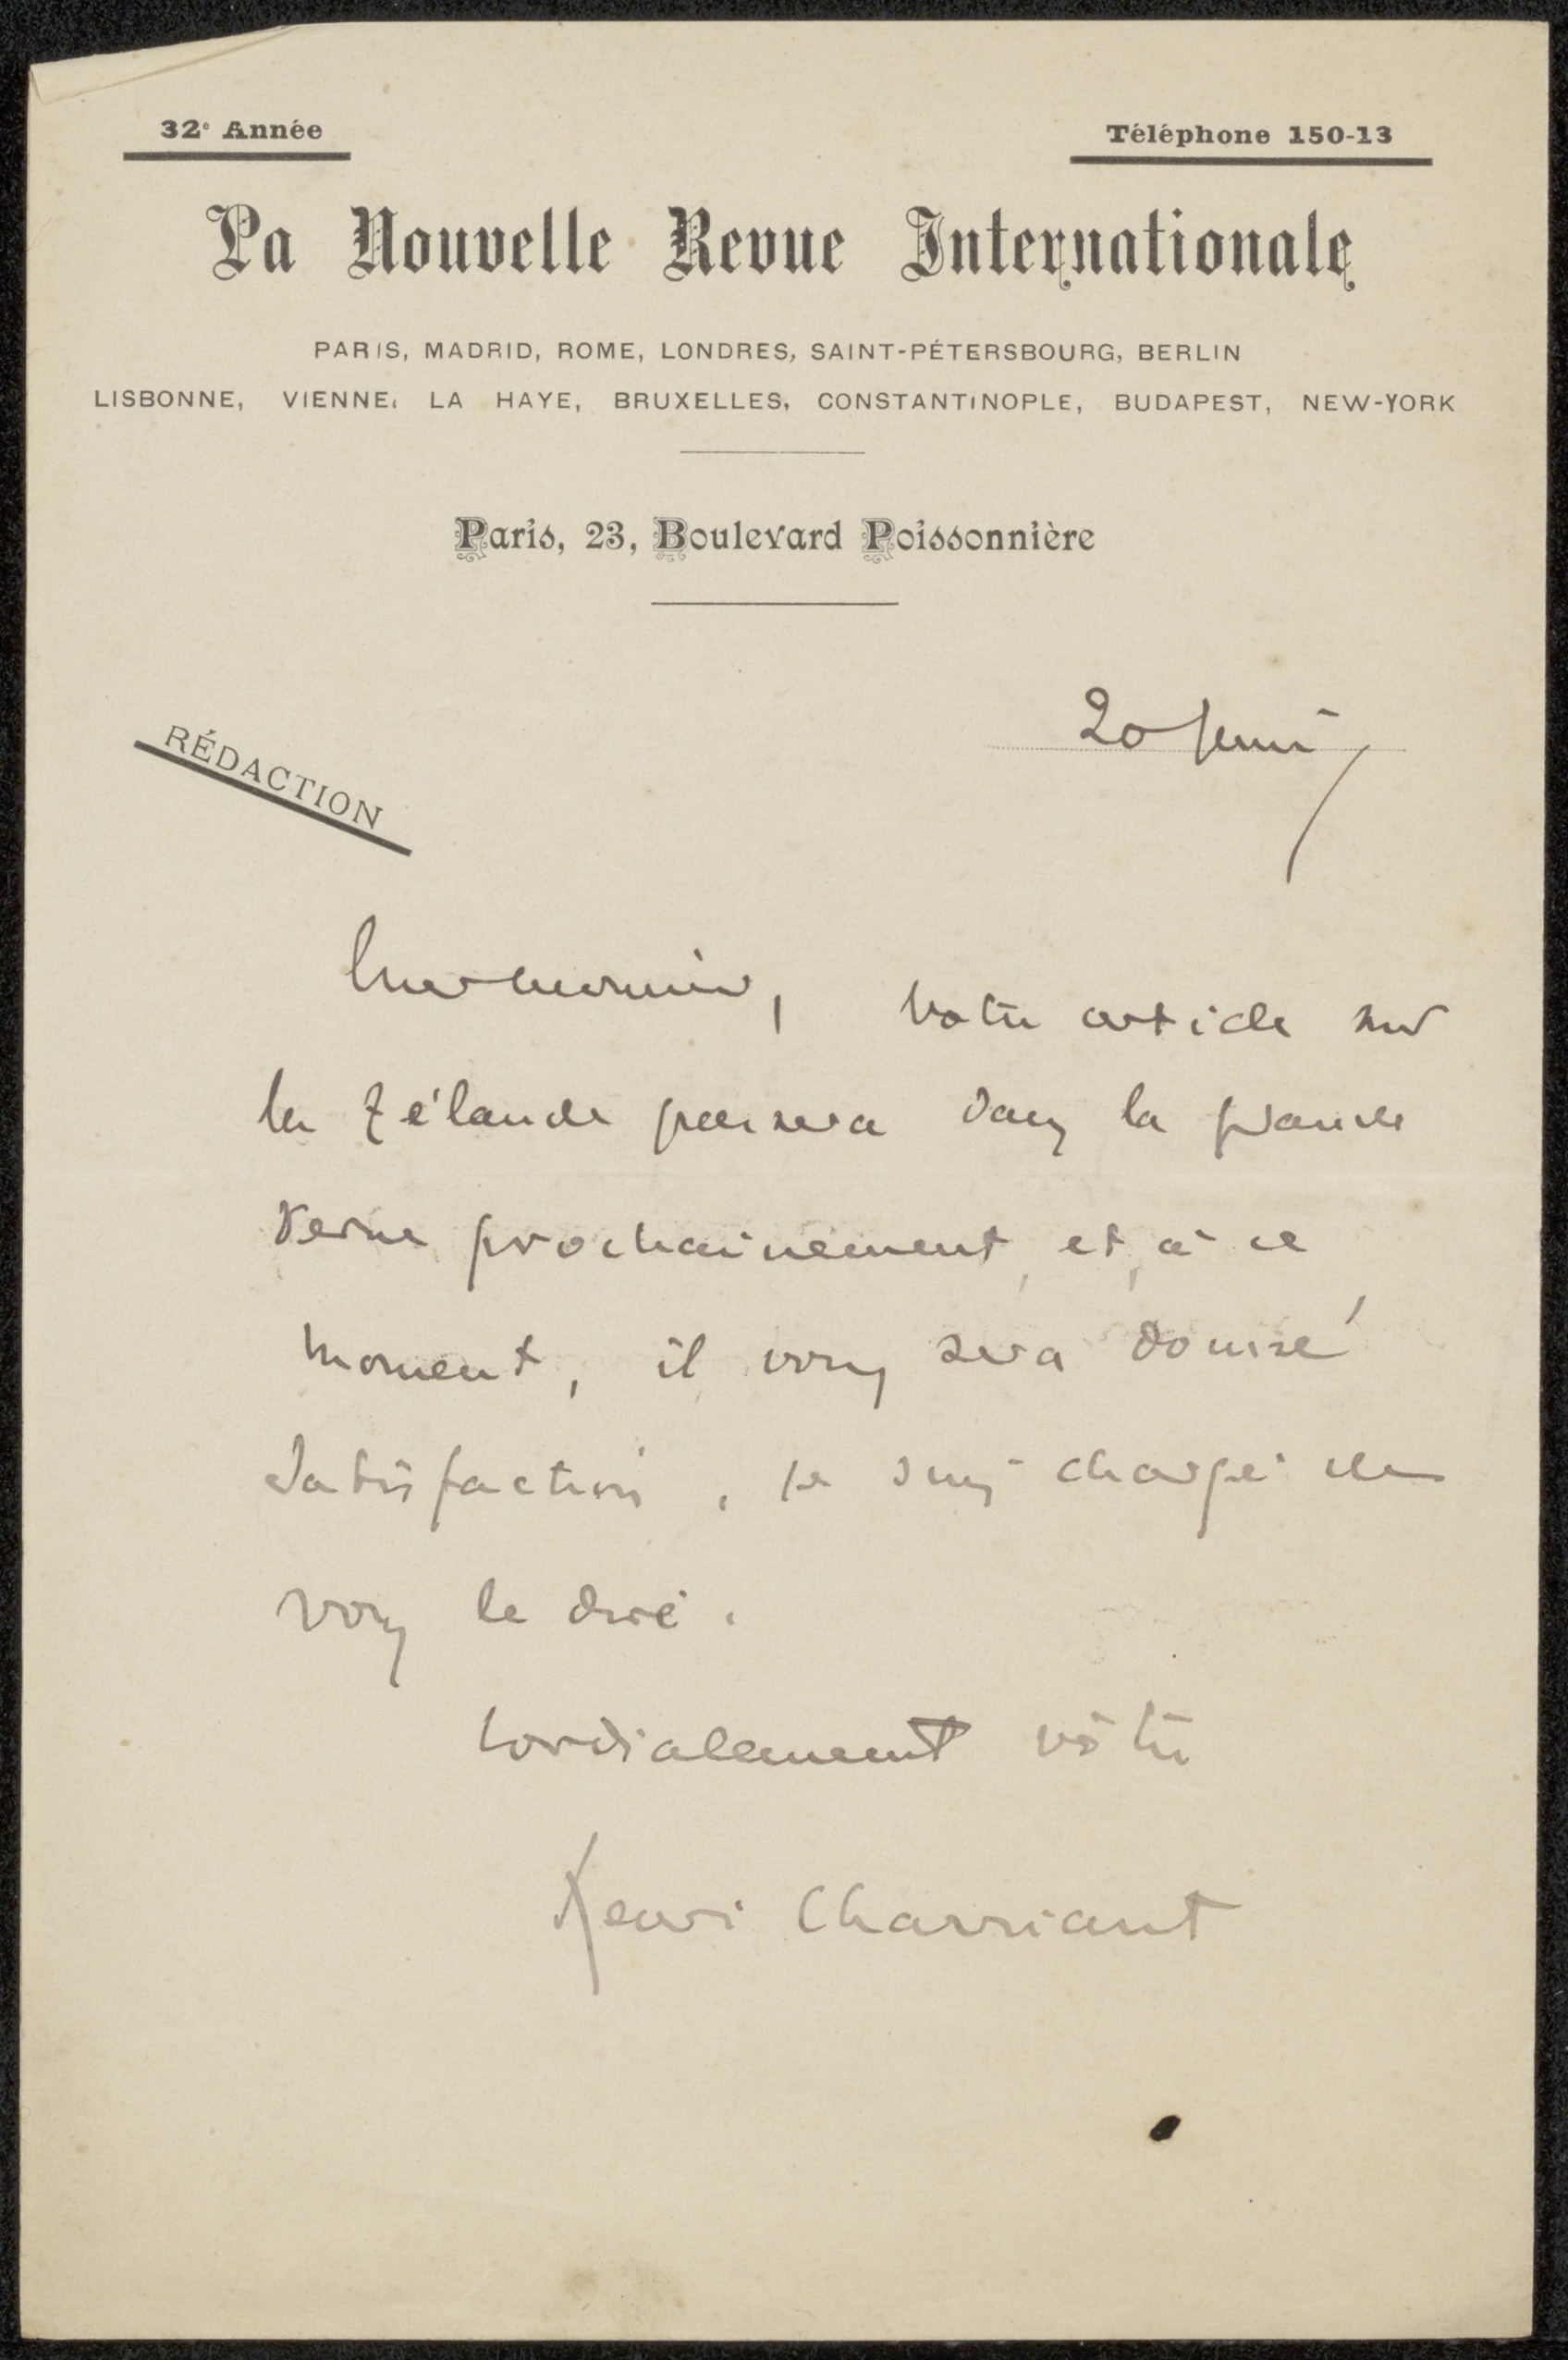 32e Année
Téléphone 150-13
La Nouvelle Revue Internationale
PARIS, MADRID, ROME, LONDRES, SAINT-PÉTERSBOURG, BERLIN
LISBONNE, VIENNE, LA HAYE, BRUXELLES, CONSTANTINOPLE, BUDAPEST, NEW-YORK
Paris, 23, Boulevard Poissonnière
20
RÉDACTION
Cher monsieur, Votre article sur
la Zélande passera dans la grande
revue prochainement, et, à ce
moment, il vous sera donné
satisfaction. Je suis chargé de
vous le dire.
Cordialement vôtre
Henri Charriaut